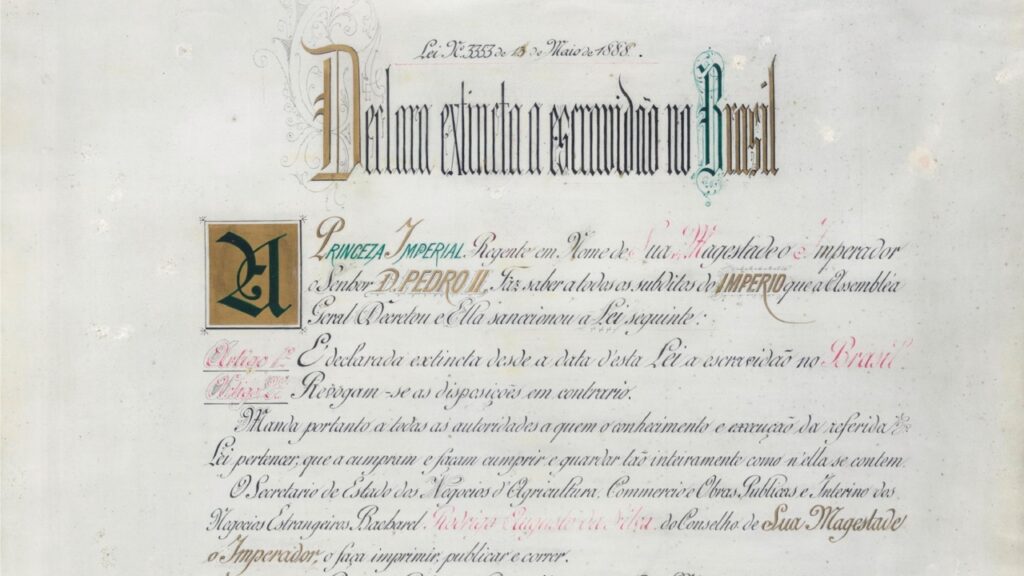 Lei Nº 3353 de 13 de Maio de 1888.
Declara extincta a escravidão no Brasil
A PRINCEZA IMPERIAL Regente em Nome de Sua Magestade o Imperador
o Senhor D. PEDRO II, Faz saber a todos os subditos do IMPERIO que a Assemblea
Geral Decretou e Ella sanccionou a Lei seguinte:
Artigo 1º É declarada extincta desde a data d'esta Lei a escravidão no Brasil.
Artigo 2º Revogam-se as disposições em contrario.
Manda portanto a todas as autoridades a quem o conhecimento e execução da referida
Lei pertencer, que a cumpram e façam cumprir e guardar tão inteiramente como n'ella se contem.
O Secretario de Estado dos Negocios d'Agricultura, Commercio e Obras Publicas e Interino dos
Negocios Estrangeiros, Bacharel Rodrigo Augusto da Silva, do Conselho de Sua Magestade
o Imperador, o faça imprimir, publicar e correr.